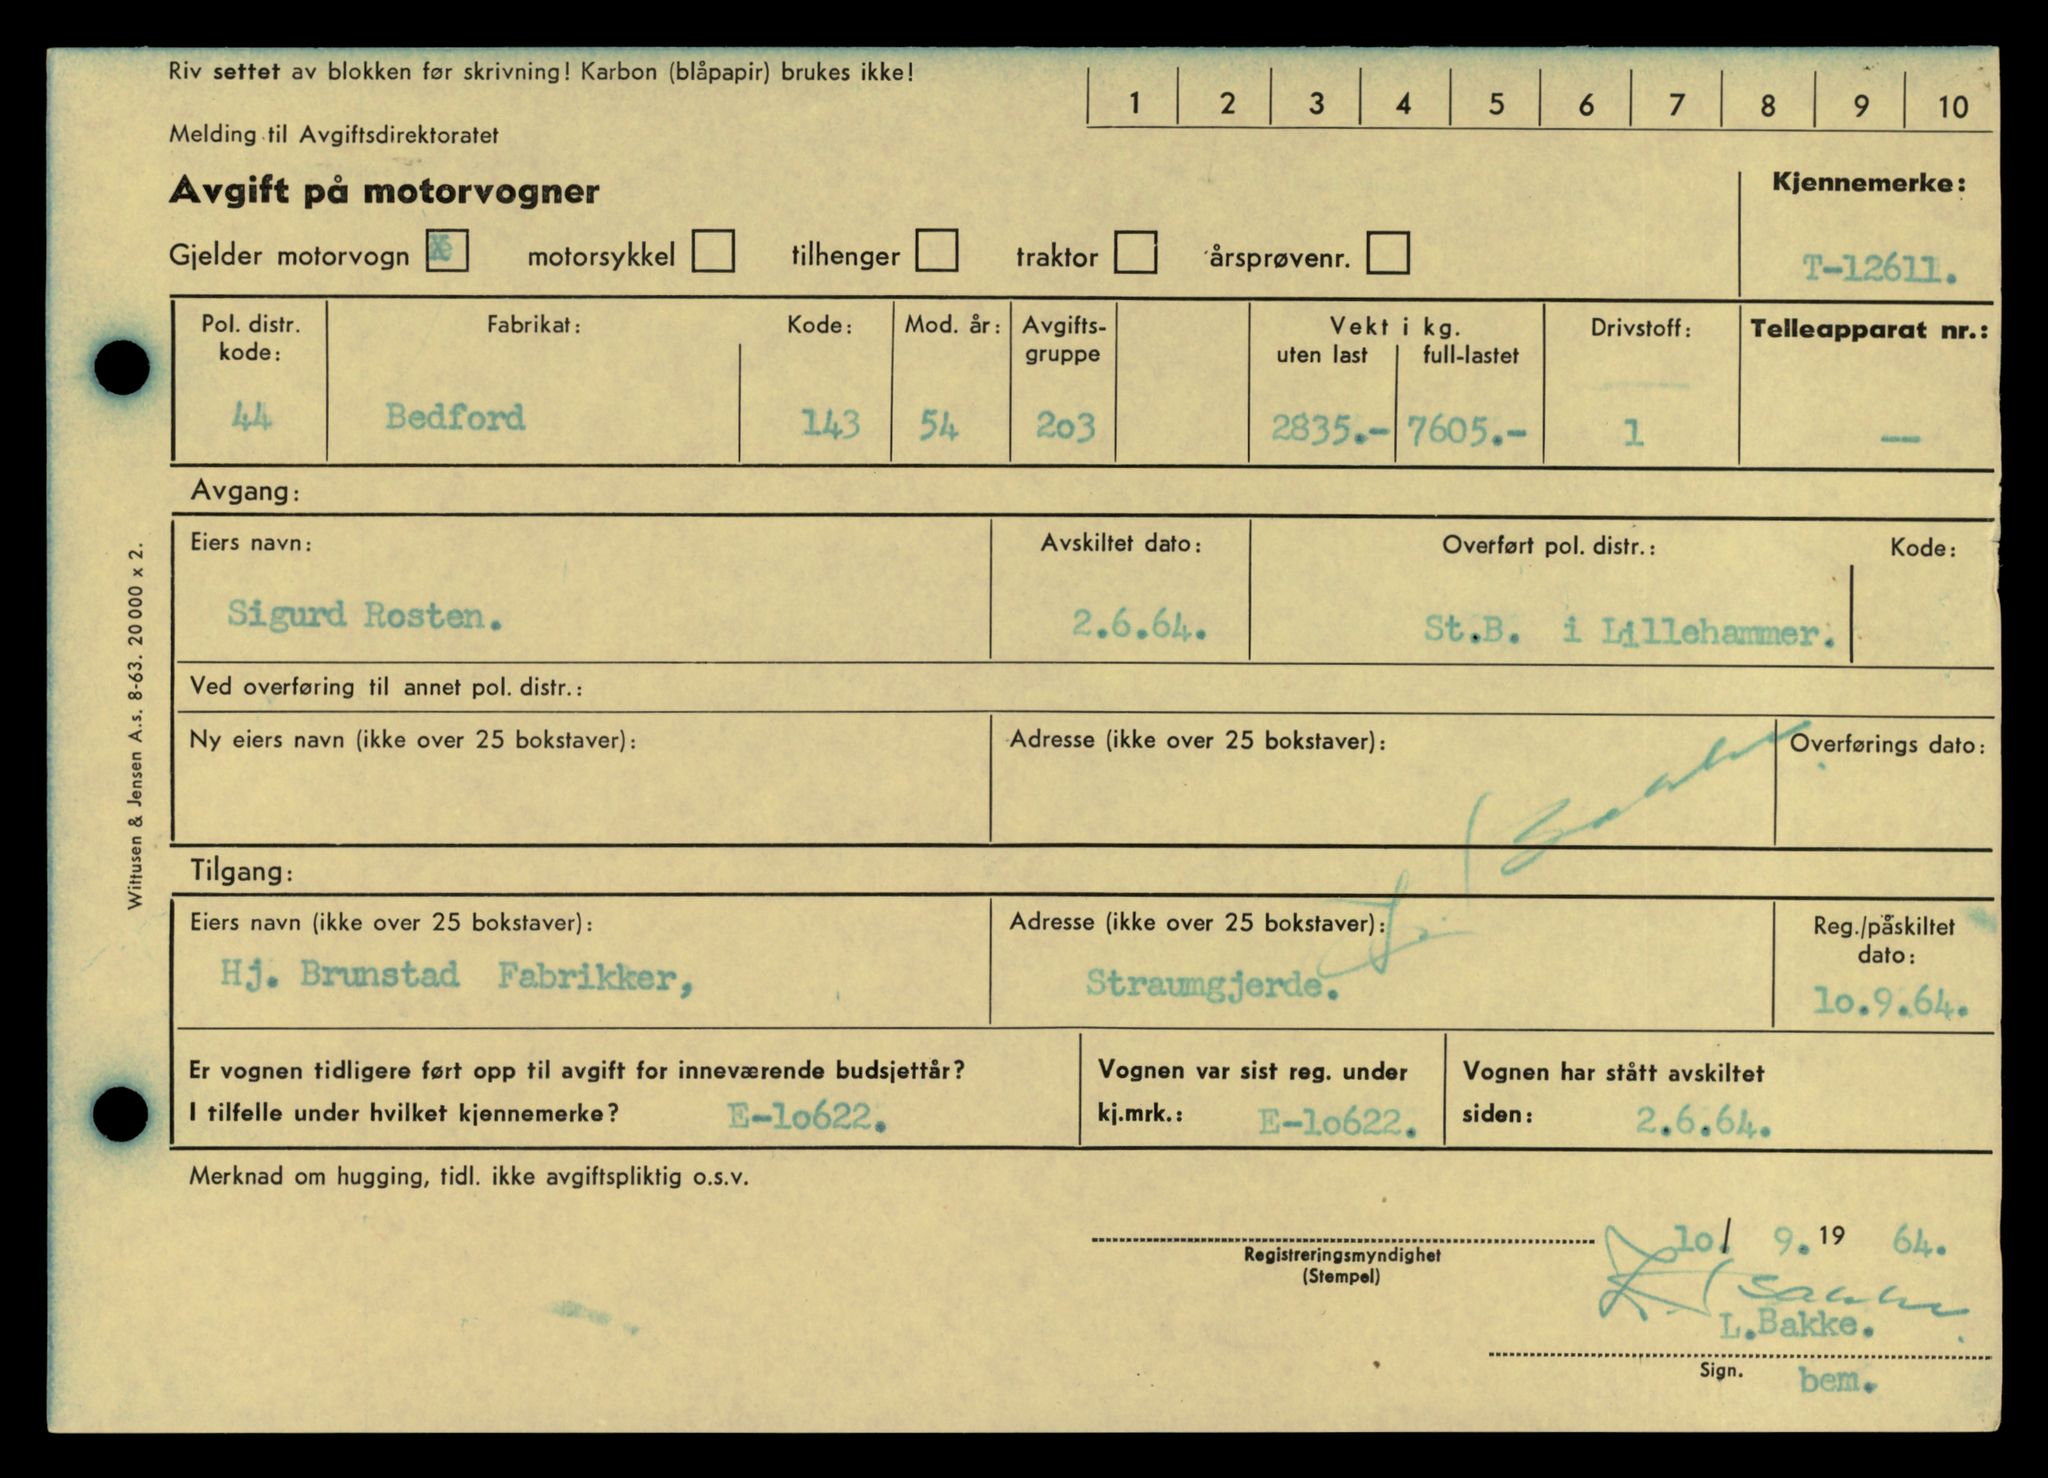 Riv settet av blokken før skrivning! Karbon (blåpapir) brukes ikke!
1 2 3 4 5 6 7 8 9 10
Melding til Avgiftsdirektoratet
Avgift på motorvogner
Kjennemerke:
Gjelder motorvogn X motorsykkel tilhenger traktor årsprøvenr.
T-12611.
Pol. distr. kode:
Fabrikat:
Kode:
Mod. år:
Avgifts-gruppe
Vekt i kg.
uten last
full-lastet
Drivstoff:
Telleapparat nr.:
44 Bedford 143 54 2o3 2835.- 7605.- 1 —
Avgang:
Eiers navn:
Avskiltet dato:
Overført pol. distr.:
Kode:
Sigurd Rosten.
2.6.64.
St.B. i Lillehammer.
Ved overføring til annet pol. distr.:
Ny eiers navn (ikke over 25 bokstaver):
Adresse (ikke over 25 bokstaver):
Overførings dato:
Tilgang:
Eiers navn (ikke over 25 bokstaver):
Adresse (ikke over 25 bokstaver):
Reg./påskiltet dato:
Hj. Brunstad Fabrikker,
Straumgjerde.
1o.9.64.
Er vognen tidligere ført opp til avgift for inneværende budsjettår?
I tilfelle under hvilket kjennemerke? E-1o622.
Vognen var sist reg. under
kj.mrk.: E-1o622.
Vognen har stått avskiltet
siden: 2.6.64.
Merknad om hugging, tidl. ikke avgiftspliktig o.s.v.
1o./ 9. 19 64.
Registreringsmyndighet
(Stempel)
L.Bakke.
Sign.
bem.
Wittusen & Jensen A.s. 8-63. 20 000 x 2.